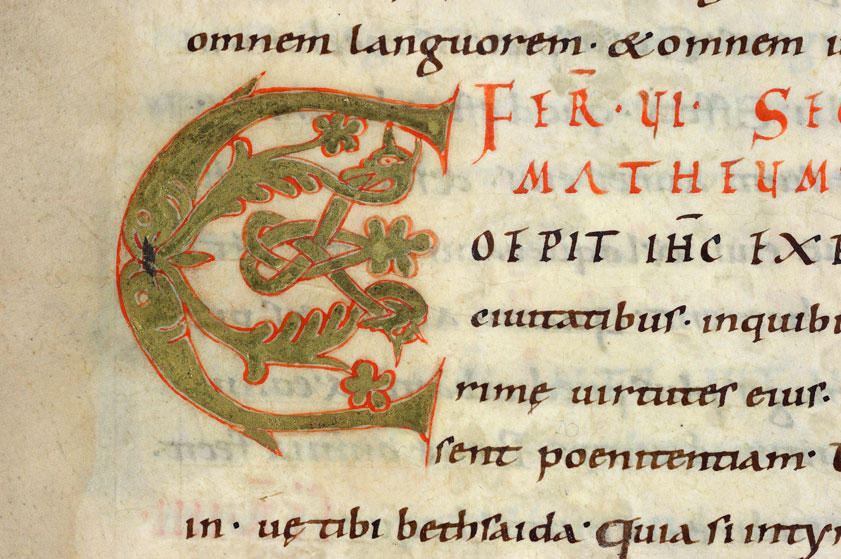 omnem languorem · & omnem
FER̄ · VI · SEC
MATHEUM
COEPIT IH̄C EXP
ciuitatibus · inquibu
rimę uirtutes eius ·
sent poenitentiam ·
in · uę tibi bethsaida · Quia si intyr